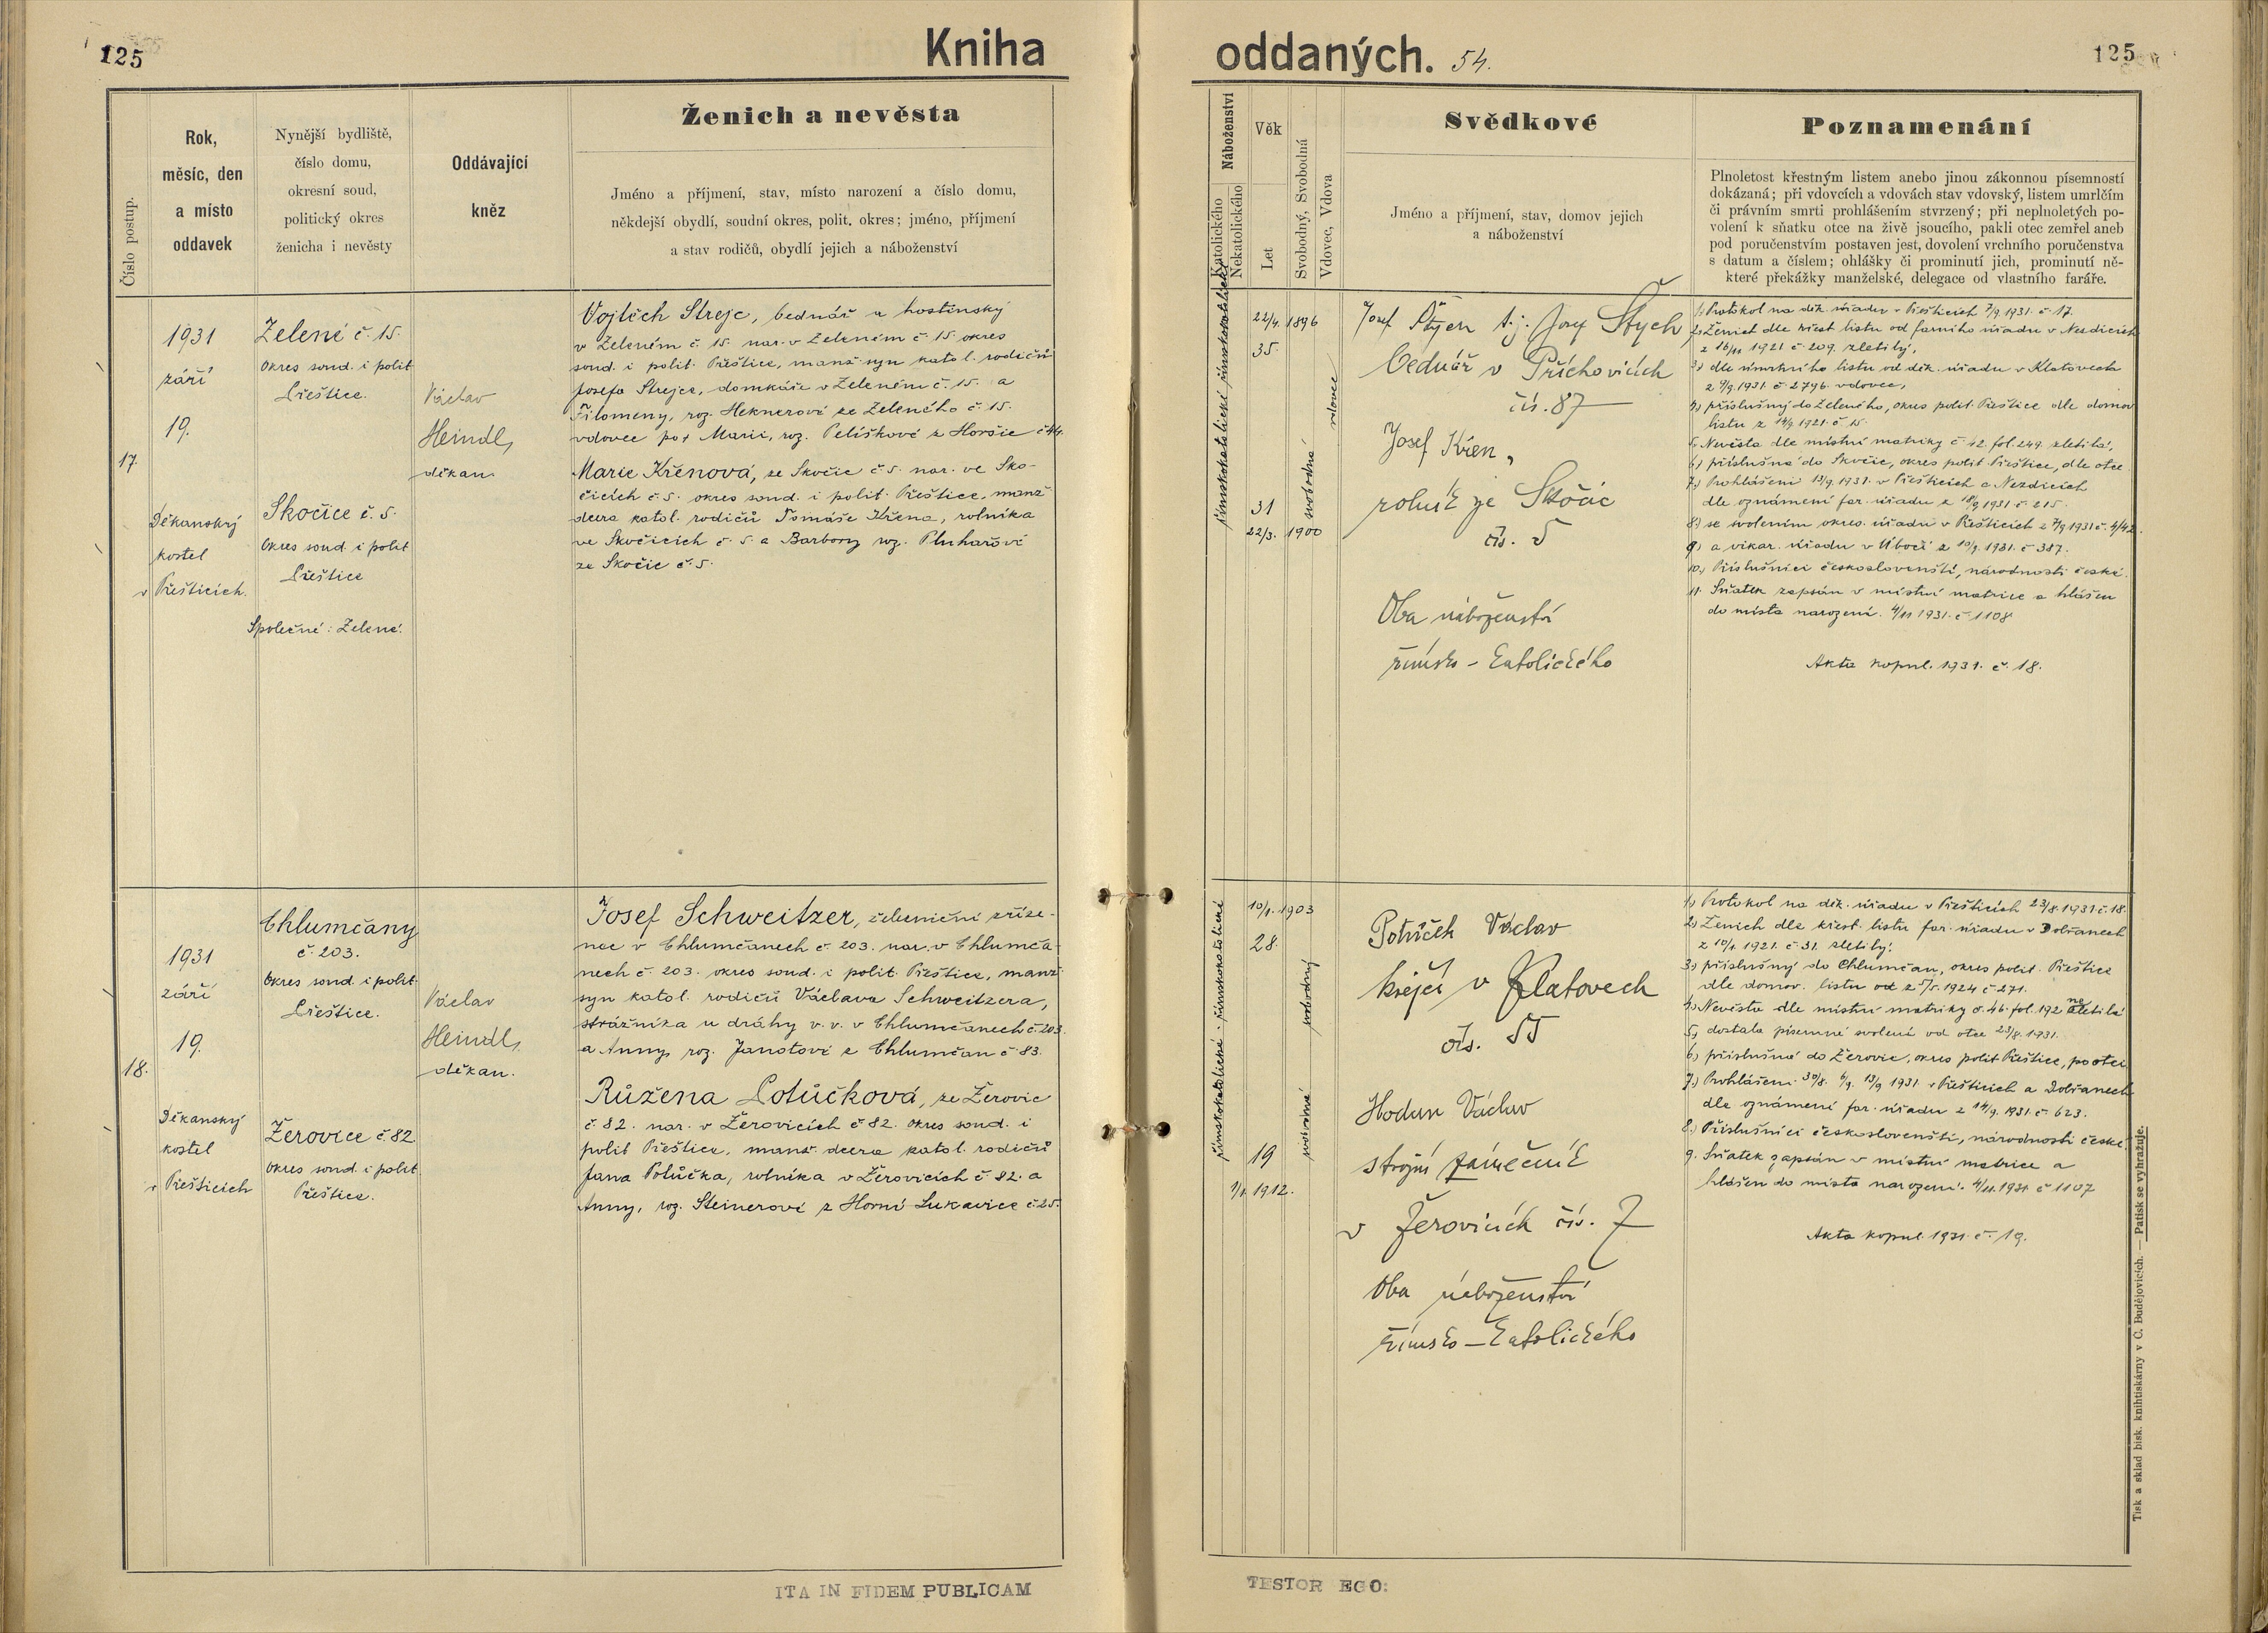 125
Kniha
Číslo postup.
Rok,
měsíc, den
a místo
oddavek
Nynější bydliště,
číslo domu,
okresní soud,
politický okres
ženicha i nevěsty
Oddávající
kněz
Ženich a nevěsta
Jméno a příjmení, stav, místo narození a číslo domu,
někdejší obydlí, soudní okres, polit. okres; jméno, příjmení
a stav rodičů, obydlí jejich a náboženství
17.
1931
září
19.
Děkanský
kostel
v Přešticích.
Zelené č. 15.
Okres soud. i polit
Přeštice.
Skočice č. 5.
Okres soud. i polit
Přeštice
Společné: Zelené.
Václav
Heindl,
děkan.
Vojtěch Strejc, bednář a hostinský
v Zeleném č. 15. nar. v Zeleném č. 15. okres
soud. i polit. Přeštice, manž. syn katol. rodičů
Josefa Strejce, domkáře v Zeleném č. 15. a
Filomeny, roz. Heknerové ze Zeleného č. 15.
vdovec po † Marii, roz. Pelíškové z Horšic č. 44.
Marie Křenová, ze Skočic č. 5. nar. ve Sko-
čicích č. 5. okres soud. i polit. Přeštice, manž
dcera katol. rodičů Tomáše Křena, rolníka
ve Skočicích č. 5. a Barbory roz. Pluhařové
ze Skočic č. 5.
18.
1931
září
19.
Děkanský
kostel
v Přešticích
Chlumčany
č. 203.
Okres soud. i polit.
Přeštice.
Žerovice č. 82
Okres soud. i polit
Přeštice.
Václav
Heindl,
děkan.
Josef Schweitzer, železniční zříze-
nec v Chlumčanech č. 203. nar. v Chlumča-
nech č. 203. okres soud. i polit. Přeštice, manž.
syn katol. rodičů Václava Schweitzera,
strážníka u dráhy v. v. v Chlumčanech č. 203.
a Anny, roz. Janotové z Chlumčan č. 83.
Růžena Potůčková, ze Žerovic
č. 82. nar. v Žerovicích č. 82. okres soud. i
polit Přeštice, manž. dcera katol. rodičů
Jana Potůčka, rolníka v Žerovicích č. 82. a
Anny, roz. Steinerové z Horní Lukavice č. 25.
ITA IN FIDEM PUBLICAM
oddaných. 54.
125
Náboženství
Katolického
Nekatolického
Věk
Let
Svobodný, Svobodná
Vdovec, Vdova
Svědkové
Jméno a příjmení, stav, domov jejich
a náboženství
Poznamenání
Plnoletost křestným listem anebo jinou zákonnou písemností
dokázaná; při vdovcích a vdovách stav vdovský, listem umrlčím
či právním smrti prohlášením stvrzený; při neplnoletých po-
volení k sňatku otce na živě jsoucího, pakli otec zemřel aneb
pod poručenstvím postaven jest, dovolení vrchního poručenstva
s datum a číslem; ohlášky či prominutí jich, prominutí ně-
které překážky manželské, delegace od vlastního faráře.
římskokatolické římskokatolické
22/4. 1896
35.
31
22/3. 1900
vdovec
svobodná
Josef Štych
bednář v Příchovicích
čís. 87
Josef Křen,
rolník ze Skočic
čís. 5
Oba náboženství
římsko-katolického
1) Protokol na děk. úřadu v Přešticích 7/9 1931. č. 17.
2) Ženich dle křest. listu od farního úřadu v Nezdicích
z 16/11 1921 č. 209. zletilý,
3) dle úmrtního listu od děk. úřadu v Klatovech
z 9/9. 1931. č. 2796. vdovec,
4) příslušný do Zeleného, okres polit. Přeštice dle domov
listu z 14/9 1921. č. 15.
5) Nevěsta dle místní matriky č. 42. fol. 249. zletilá,
6) příslušná do Skočic, okres polit. Přeštice, dle otce.
7) Prohlášeni 13/9. 1931. v Přešticích a Nezdicích
dle oznámení far. úřadu z 18/9 1931 č. 215.
8) se svolením okres. úřadu v Přešticích z 7/9 1931 č. 4/42
9) a vikar. úřadu v Úboči z 10/9. 1931. č. 387.
10) Příslušníci českoslovenští, národnosti české.
11. Sňatek zapsán v místní matrice a hlášen
do místa narození. 4/11 1931. č. 1108
Akta kopul. 1931. č. 18.
římskokatolické - římskokatolické
10/1. 1903
28.
19
1/1. 1912.
svobodný
svobodná
Potůček Václav
krejčí v Klatovech
čís. 55
Hodan Václav
strojní zámečník
v Žerovicích čís. 7
Oba náboženství
římsko-katolického
1) Protokol na děk. úřadu v Přešticích 23/8 1931 č. 18.
2) Ženich dle křest. listu far. úřadu v Dobřanech
z 10/1. 1921. č. 31. zletilý.
3) příslušný do Chlumčan, okres polit. Přeštice
dle domov. listu od z 5/5. 1924 č. 271.
4) Nevěsta dle místní matriky č. 46. fol. 192 nezletilá
5) dostala písemné svolení od otce 23/8. 1931.
6) příslušná do Žerovic, okres polit Přeštice, po otci
7) Prohlášeni 30/8. 6/9. 13/9 1931. v Přešticích a Dobřanech
dle oznámení far. úřadu z 14/9. 1931. č. 623.
8) Příslušníci českoslovenští, národnosti české.
9. Sňatek zapsán v místní matrice a
hlášen do místa narození. 4/11. 1931 č. 1107
Akta kopul. 1931. č. 19.
TESTOR EGO:
Tisk a sklad bisk. knihtiskárny v Č. Budějovicích. — Patisk se vyhražuje.